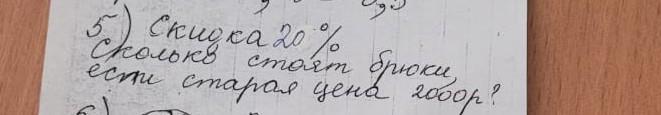 5) Скидка 20%
Сколько стоят брюки,
если старая цена 2000р?
6)